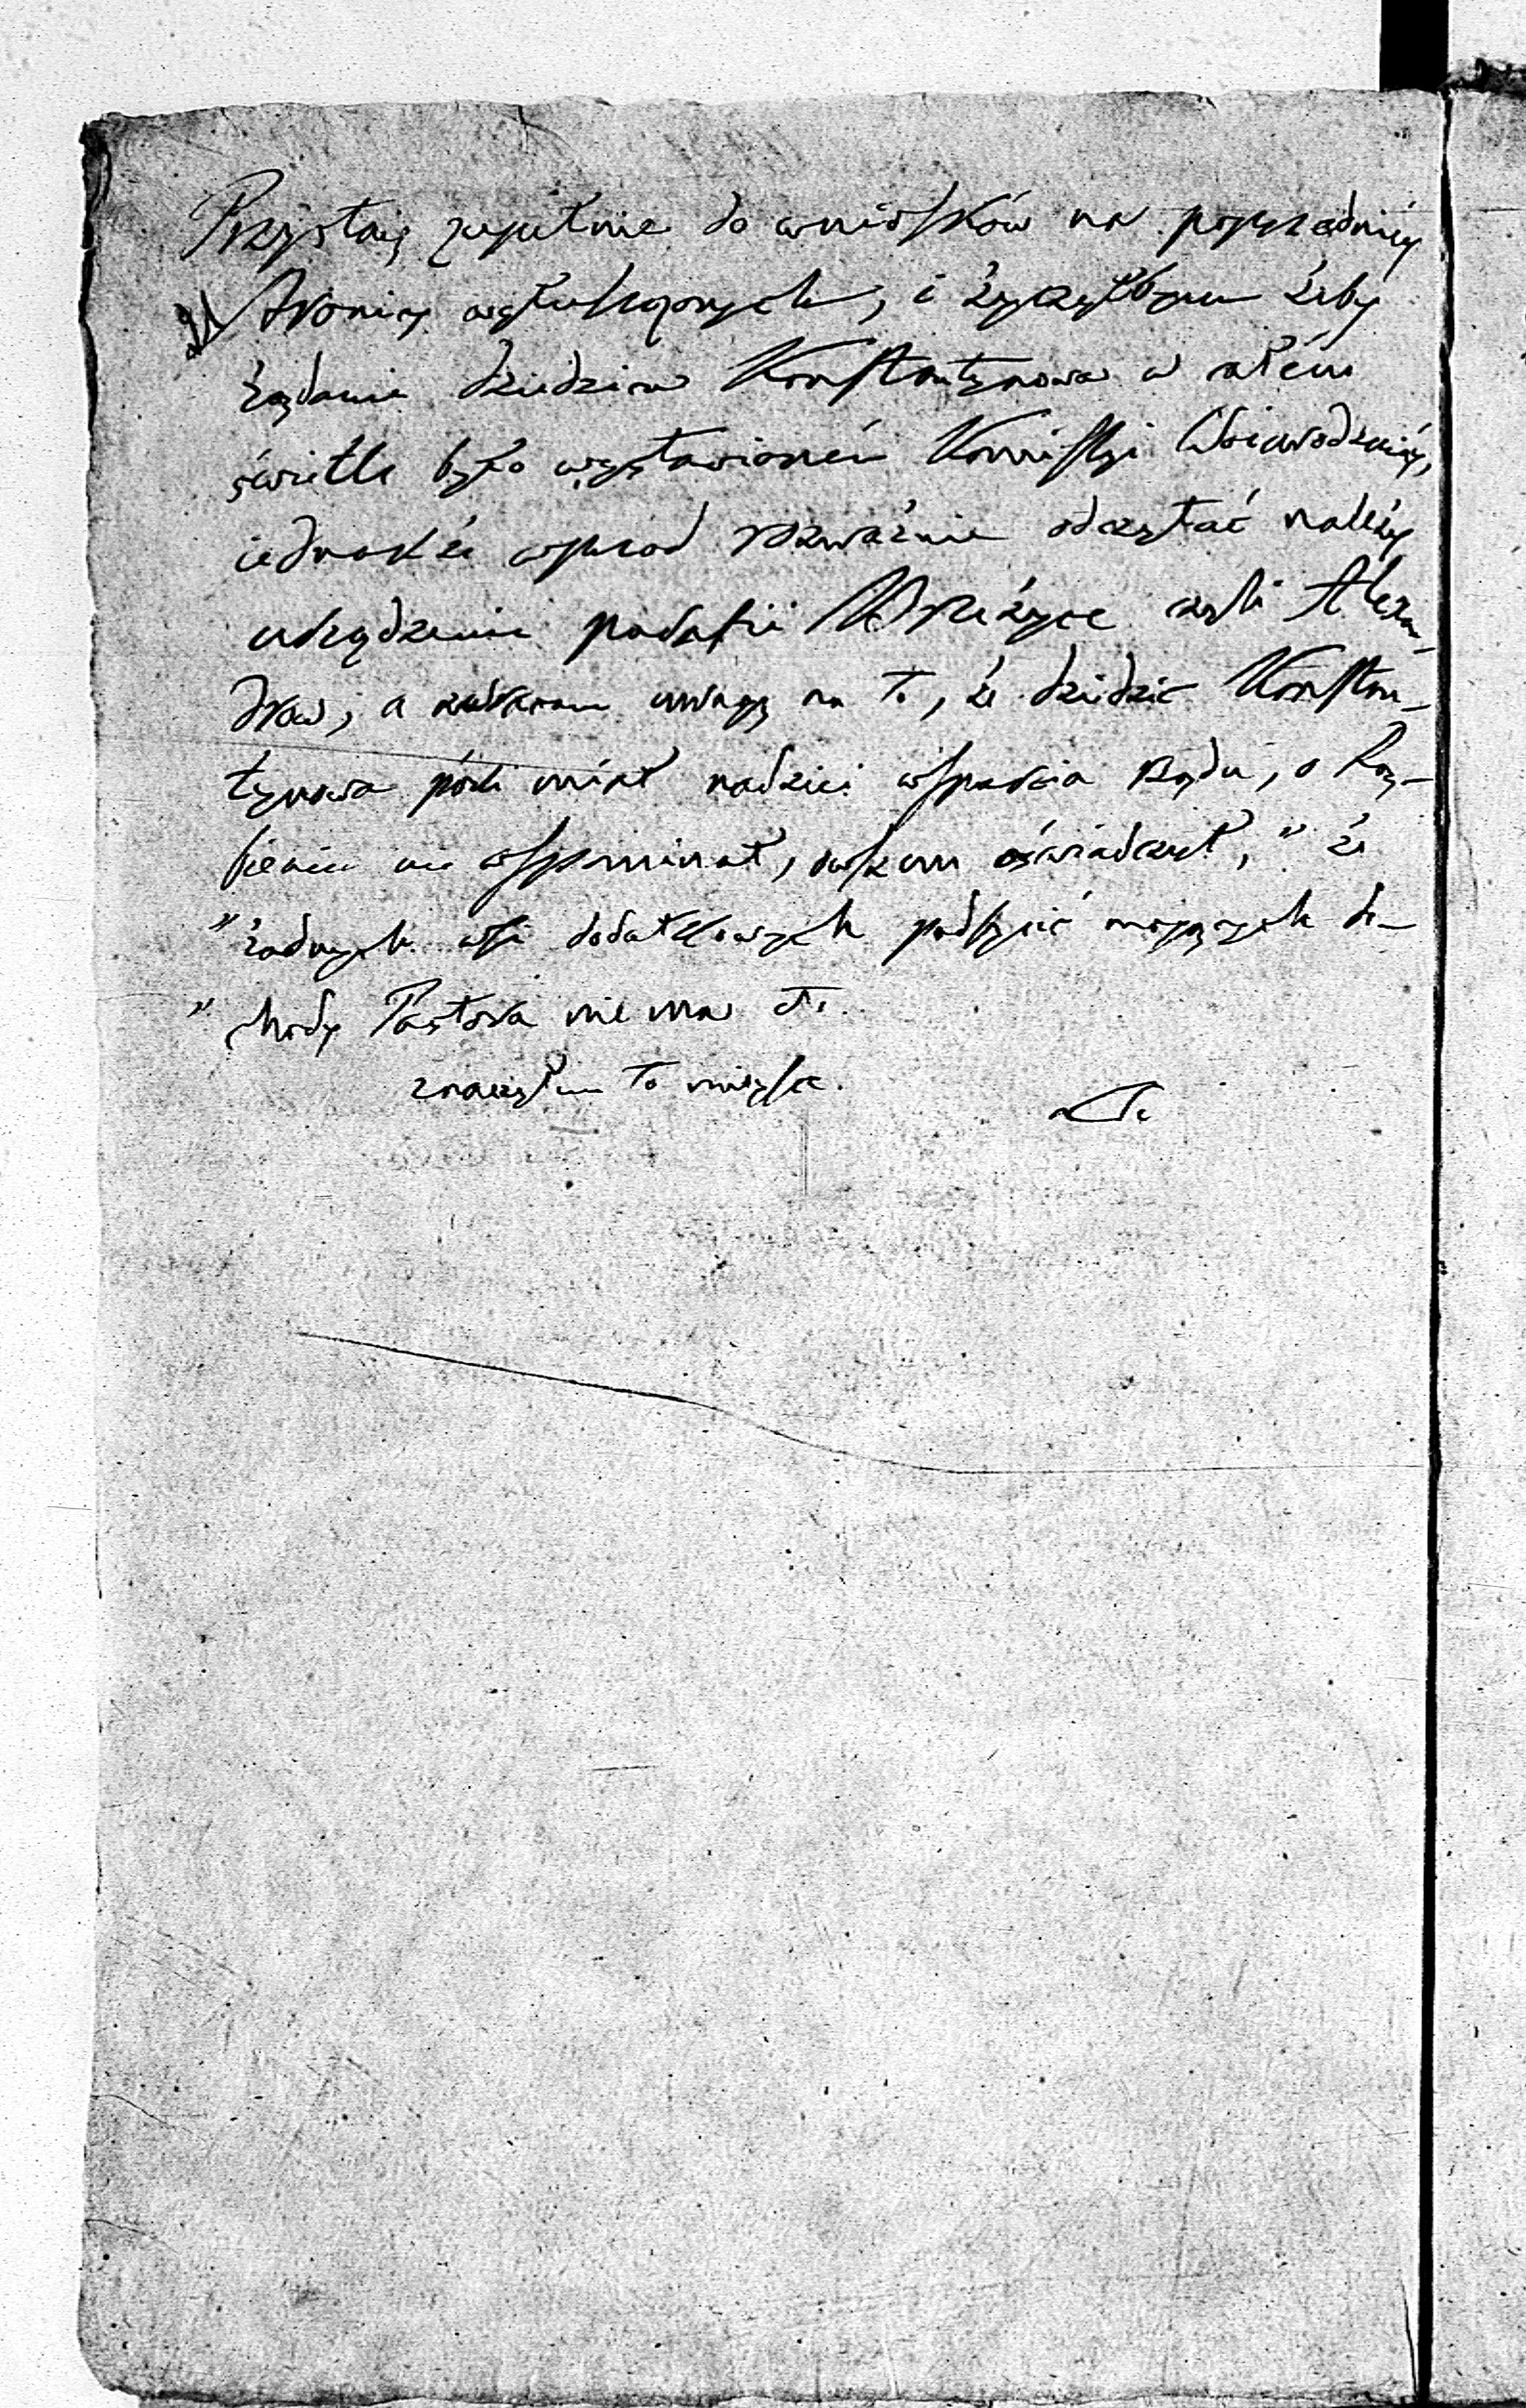 Przystaię zupełnie do wniosków na poprzedniéy
stronicy wyłuszczonych, i życzyłbym żeby
żądanie dziedzica Konstantynowa w całém
świetle było wystawioném Kommissyi Woiewodzkiéy,
iednakże wprzod rozważnie odczytać należy
urządzenie parafii Wierzbno czyli Alexan-
drow, a zwracam uwagę na to, że dziedzic Konstan-
tynowa póki miał nadzieię wsparcia Rządu, o
nie wspominał, owszem oświadczył, " że
" żadnych wsi dodatkowych podsycić mogących do-
" chody Pastora nie ma etc.
znaczyłem to mieysce.